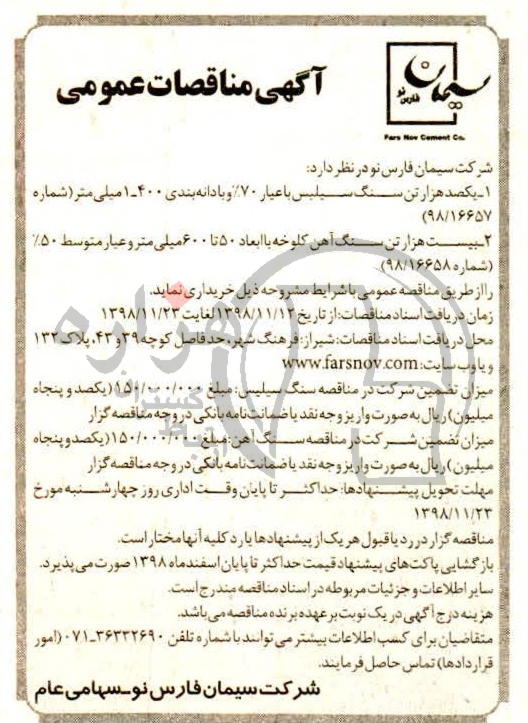 سیمان
فارس نو
Fars Nov Cement Co.
آگهی مناقصات عمومی
شرکت سیمان فارس نو در نظر دارد:
۱ـ یکصد هزار تن سنگ سیلیس با عیار ۷۰٪ و با دانه‌بندی ۴۰۰ـ۱ میلی متر (شماره
۹۸/۱۶۶۵۷)
۲ـ بیست هزار تن سنگ آهن کلوخه با ابعاد ۵۰ تا ۶۰۰ میلی متر و عیار متوسط ۵۰٪
(شماره ۹۸/۱۶۶۵۸)
را از طریق مناقصه عمومی با شرایط مشروحه ذیل خریداری نماید.
زمان دریافت اسناد مناقصات: از تاریخ ۱۳۹۸/۱۱/۱۲ لغایت ۱۳۹۸/۱۱/۲۳
محل دریافت اسناد مناقصات: شیراز: فرهنگ شهر، حد فاصل کوچه ۳۹ و ۴۳، پلاک ۱۳۲
و یا وب سایت: www.farsnov.com
میزان تضمین شرکت در مناقصه سنگ سیلیس: مبلغ ۱۵۰/۰۰۰/۰۰۰ (یکصد و پنجاه
میلیون) ریال به صورت واریز وجه نقد یا ضمانت‌نامه بانکی در وجه مناقصه گزار
میزان تضمین شرکت در مناقصه سنگ آهن: مبلغ ۱۵۰/۰۰۰/۰۰۰ (یکصد و پنجاه
میلیون) ریال به صورت واریز وجه نقد یا ضمانت‌نامه بانکی در وجه مناقصه گزار
مهلت تحویل پیشنهادها: حداکثر تا پایان وقت اداری روز چهارشنبه مورخ
۱۳۹۸/۱۱/۲۳
مناقصه گزار در رد یا قبول هر یک از پیشنهادها یا رد کلیه آنها مختار است.
بازگشایی پاکت‌های پیشنهاد قیمت حداکثر تا پایان اسفند ماه ۱۳۹۸ صورت می‌پذیرد.
سایر اطلاعات و جزئیات مربوطه در اسناد مناقصه مندرج است.
هزینه درج آگهی در یک نوبت بر عهده برنده مناقصه می‌باشد.
متقاضیان برای کسب اطلاعات بیشتر می‌توانند با شماره تلفن ۳۶۳۳۲۶۹۰ـ۰۷۱ (امور
قراردادها) تماس حاصل فرمایند.
شرکت سیمان فارس نو ـ سهامی عام
هزاره